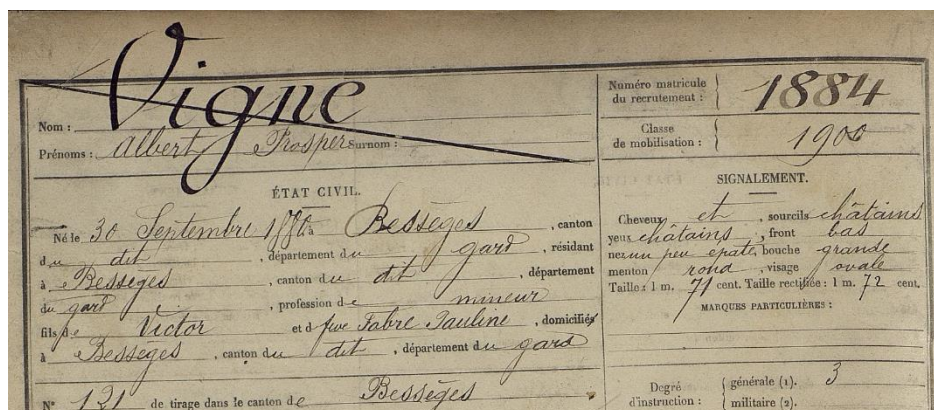 Nom : Vigne
Prénoms : Albert Prosper Surnom :
ÉTAT CIVIL.
Né le 30 Septembre 1880 à Bessèges, canton
du dit, département du gard, résidant
à Bessèges, canton du dit, département
du gard, profession de mineur
fils de Victor et d fve Fabre Pauline, domiciliés
à Bessèges, canton du dit, département du gard
N° 131 de tirage dans le canton de Bessèges
Numéro matricule
du recrutement : 1884
Classe
de mobilisation : 1900
SIGNALEMENT.
Cheveux et, sourcils châtains
yeux châtains, front bas
nez un peu épaté, bouche grande
menton rond, visage ovale
Taille : 1 m. 71 cent. Taille rectifiée : 1 m. 72 cent.
MARQUES PARTICULIÈRES :
Degré
d'instruction :
générale (1). 3
militaire (2).